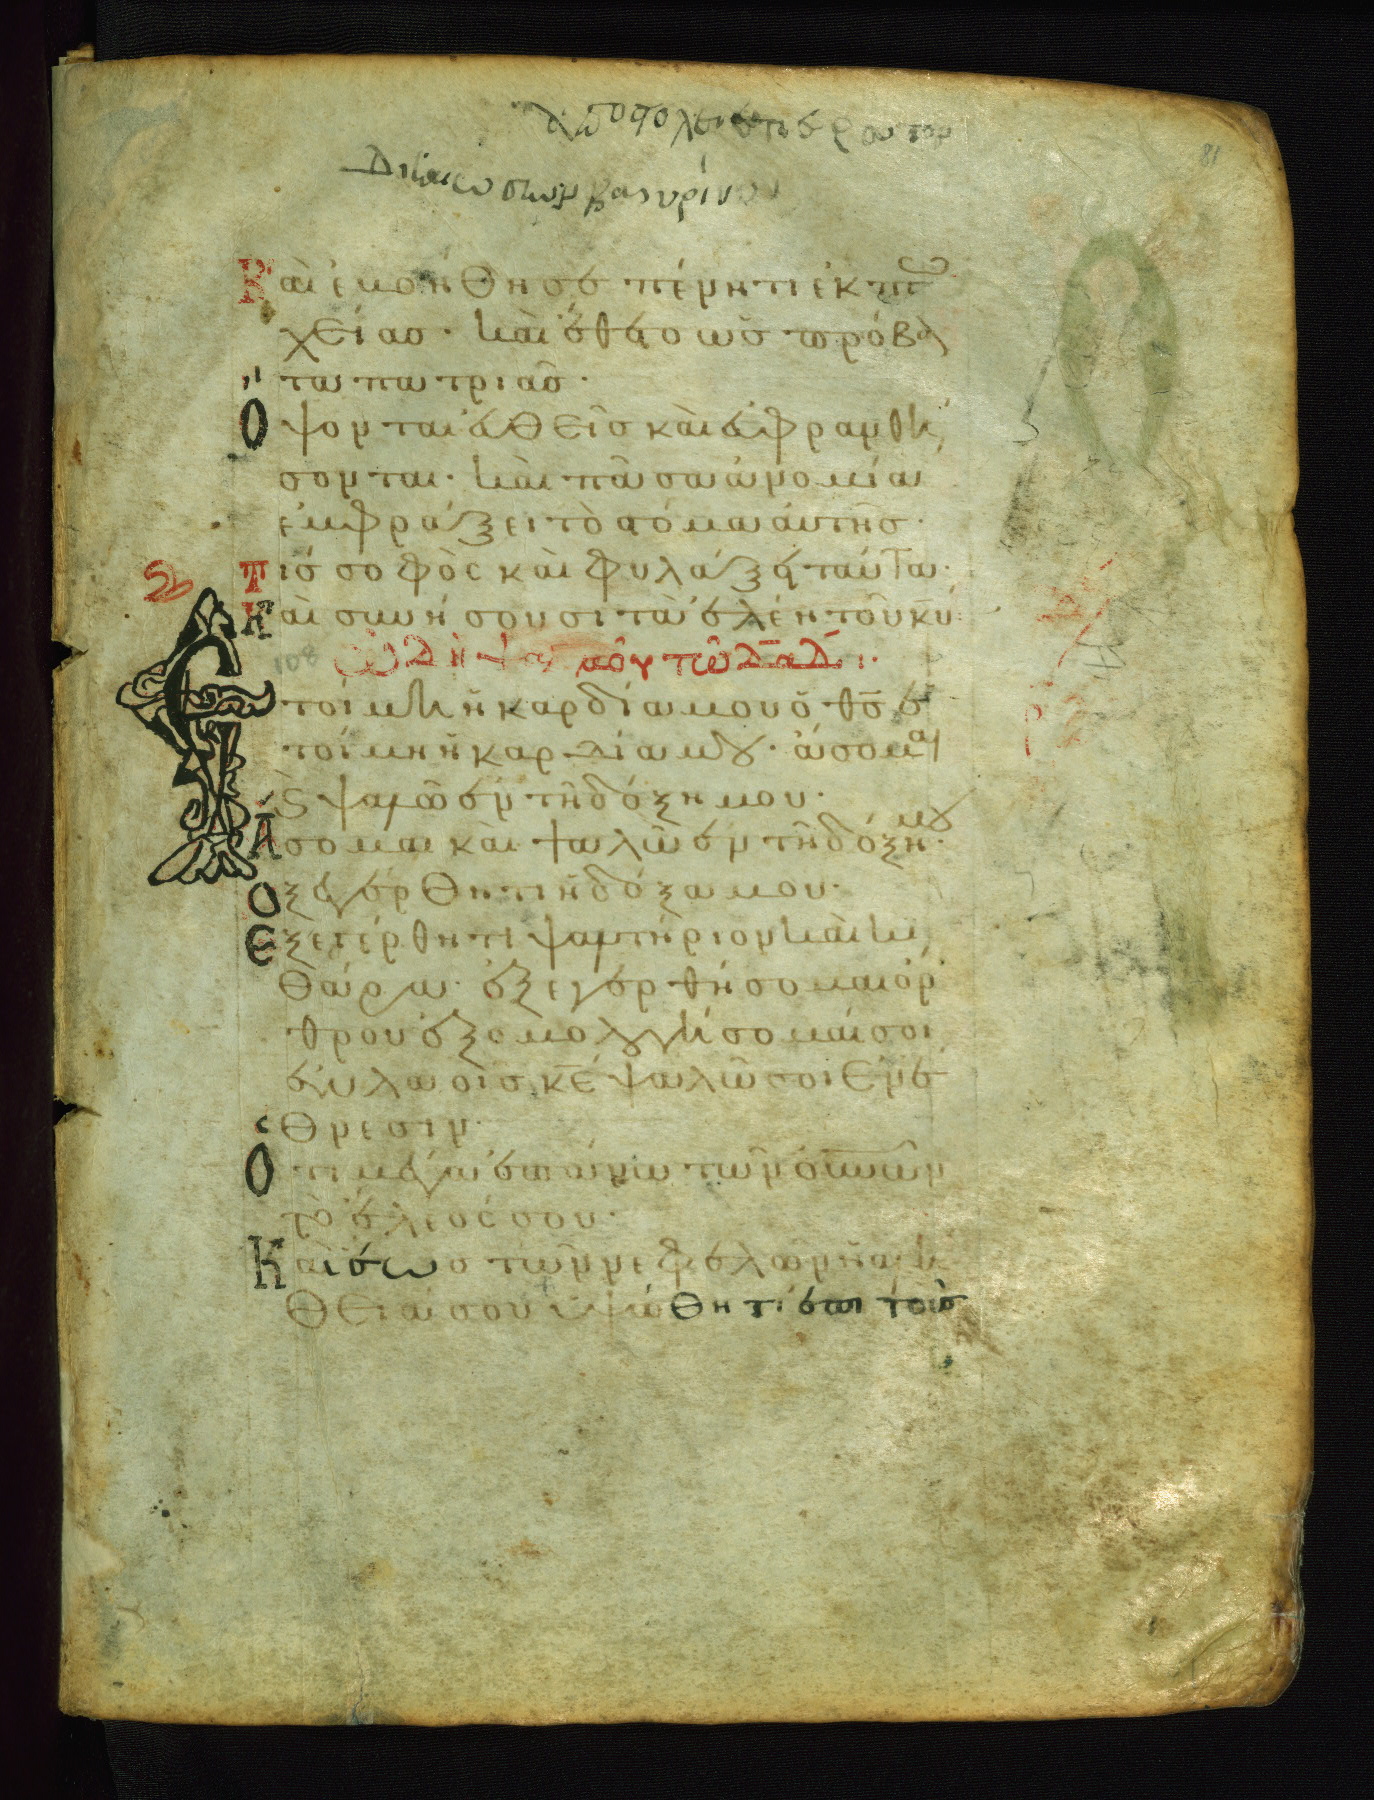 81
Καὶ ἐβοήθησε πένητι ἐκ πτω
χείας· καὶ ἔθετο ὡς πρόβα
τα πατριάς·
Ὄψονται εὐθεῖς καὶ εὐφρανθή
σονται· καὶ πᾶσα ἀνομία
ἐμφράξει τὸ στόμα αὐτῆς·
Τίς σοφὸς καὶ φυλάξει ταῦτα·
Καὶ συνήσουσι τὰ ἐλέη τοῦ κυ·
108 ὠδὴ ψαλμοῦ τῶ δαδ·
Ἑτοίμη ἡ καρδία μου ὁ θς ἑ
τοίμη ἡ καρδία μου· ἄσομαι
καὶ ψαλῶ ἐν τῆ δόξη μου·
Ἄσομαι καὶ ψαλῶ ἐν τῆ δόξη μου·
ξεγέρθητι ἡ δόξα μου·
Ἐξεγέρθητι ψαλτήριον καὶ κι
θάρα· ἐξεγερθήσομαι ὄρ
θρου ἐξομολογήσομαί σοι
ἐν λαοῖς κε ψαλῶ σοι ἐν ἔ
θνεσιν·
Ὅτι μέγα ἐπάνω τῶν οὐνῶν
τὸ ἔλεός σου·
Καὶ ἕως τῶν νεφελῶν ἡ ἀλή
θειά σου ὑψώθητι ἐπὶ τοὺς